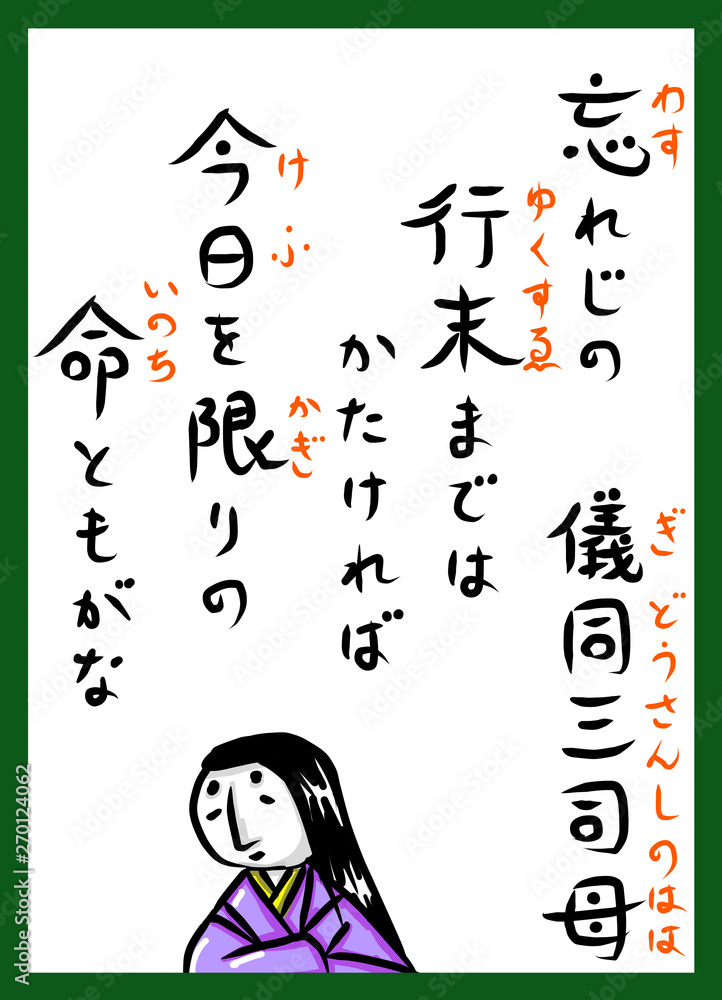 わす
忘れじの
ぎどうさんしのはは
儀同三司母
ゆくすゑ
行末までは
かたければ
けふ かぎ
今日を限りの
いのち
命ともがな
Adobe Stock | #270124062